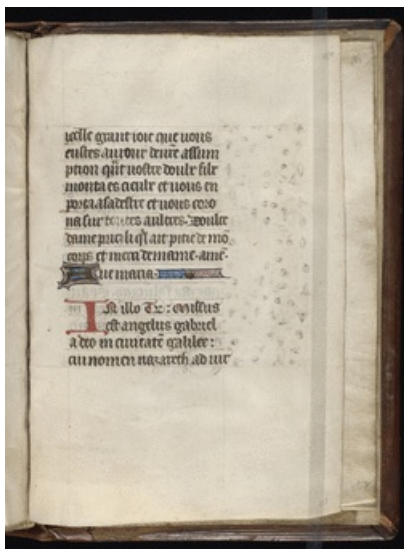 icelle grant ioie que vous
eustes au iour de vr̃e assum
ption qñt vostre doulz filz
monta es cieulx et vous en
porta a sa destre et vous coro
na sur toutes aultres. Doulce
dame priez li qͥl ait pitie de mõ
corps et me doi de mame. amẽ.
Aue maria.
In illo Tp̃: Missus
est angelus gabriel
a deo in ciuitatẽ galilee:
cui nomen nazareth ad uir